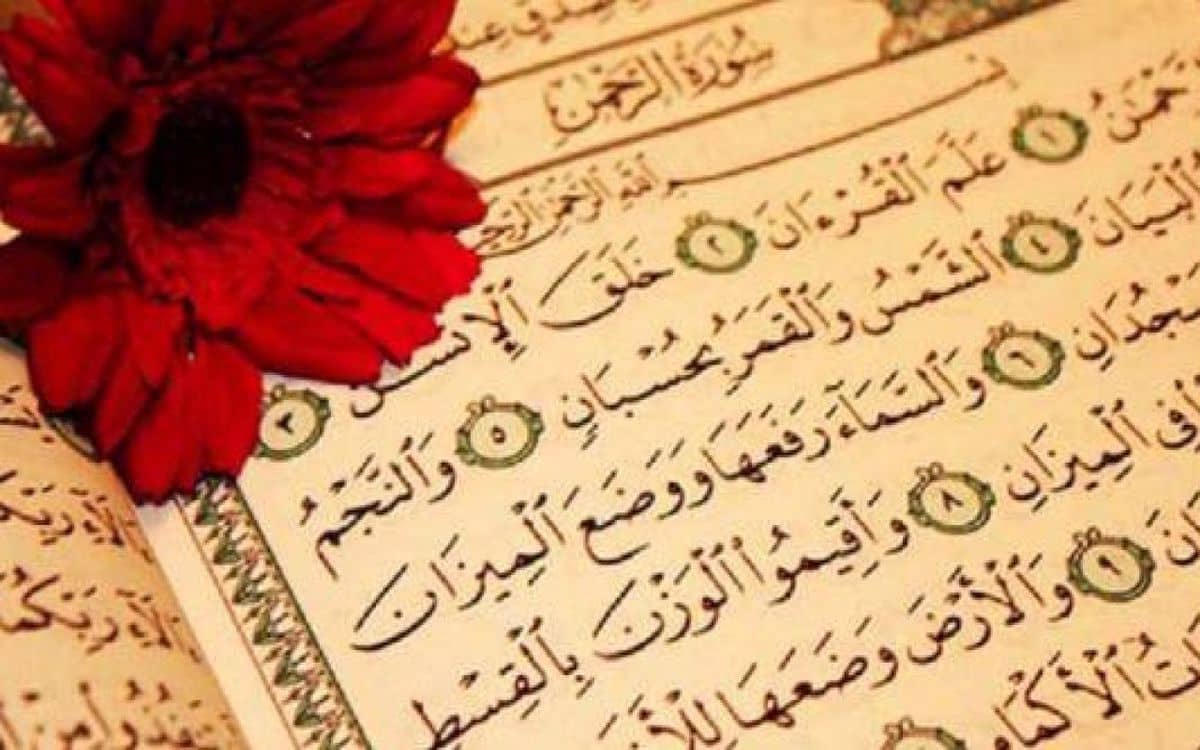 عِندَ
سُورَةُ الرَّحْمٰنِ
بِسْمِ ٱللَّهِ ٱلرَّحْمَٰنِ ٱلرَّحِيمِ
حْمَٰنُ ١ عَلَّمَ ٱلْقُرْءَانَ ٢ خَلَقَ ٱلْإِنسَٰنَ ٣
ٱلْبَيَانَ ٤ ٱلشَّمْسُ وَٱلْقَمَرُ بِحُسْبَانٍ ٥ وَٱلنَّجْمُ
سْجُدَانِ ٦ وَٱلسَّمَآءَ رَفَعَهَا وَوَضَعَ ٱلْمِيزَانَ
فِى ٱلْمِيزَانِ ٨ وَأَقِيمُوا۟ ٱلْوَزْنَ بِٱلْقِسْطِ
انَ ٩ وَٱلْأَرْضَ وَضَعَهَا
اتُ ٱلْأَكْمَامِ
ءَالَآءِ رَبِّكُمَا